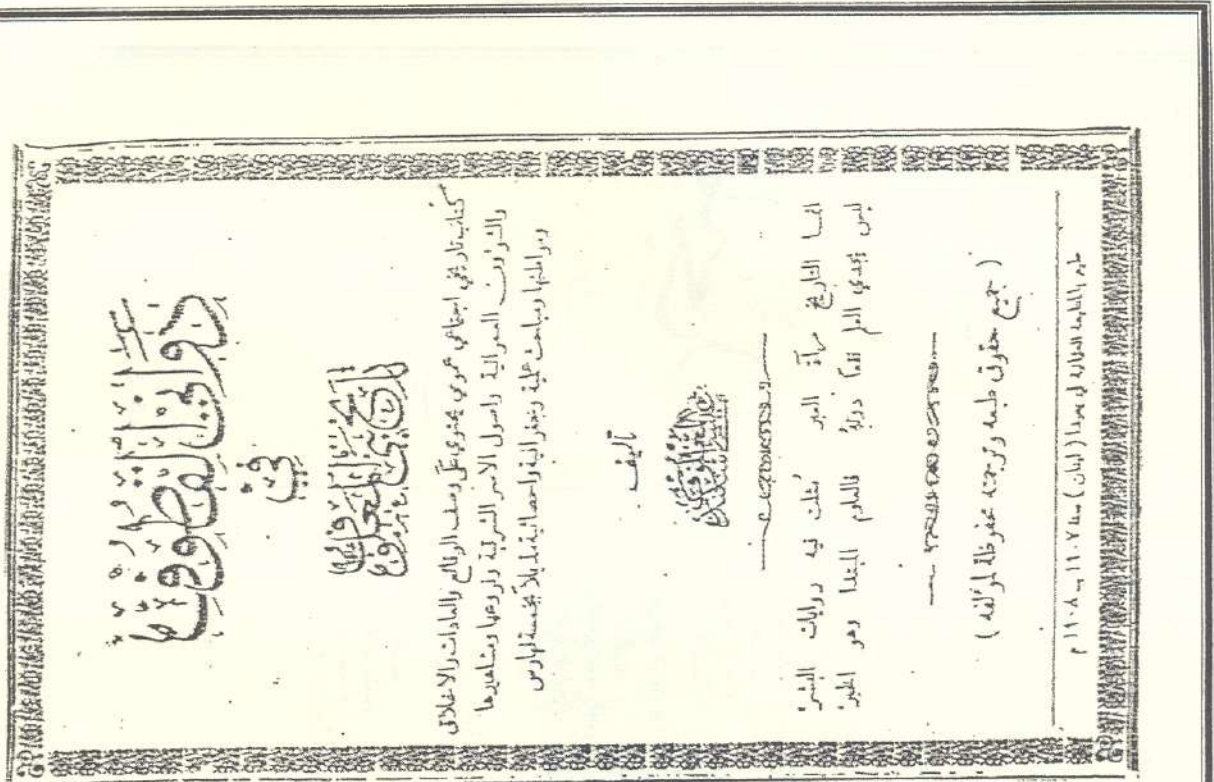 دواني القطوف
في
تاريخ بني المعلوف
كتاب تاريخي اجتماعي عمومي يحتوي على وصف الوقائع والعادات والاخلاق
والشؤون العمرانية واصول الاسر الشرقية وفروعها ومشاهيرها
ومواطنها ومباحث علمية وجغرافية واحصائية مذيلاً بخمسة فهارس
تأليف
عيسى اسكندر المعلوف
انما التاريخ مرآة العبر مُثلت فيه روايات البشر
ليس يجدي العلم درايةً فالعلوم المبتدا وهو الخبر
( جميع حقوق طبعه وترجمته محفوظة لمؤلفه )
طبع بالمطبعة العثمانية في بعبدا ( لبنان ) سنة ١٩٠٧ - ١٩٠٨ م